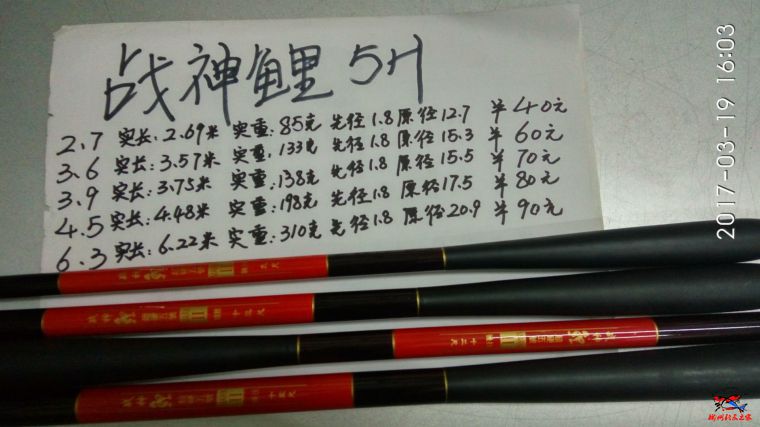 战神鲤 5H
2.7 实长:2.69米 实重:85克 先径1.8 原径12.7 半40元
3.6 实长:3.57米 实重:133克 先径1.8 原径15.3 半60元
3.9 实长:3.75米 实重:138克 先径1.8 原径15.5 半70元
4.5 实长:4.48米 实重:198克 先径1.8 原径17.5 半80元
6.3 实长:6.22米 实重:310克 先径1.8 原径20.9 半90元
2017-03-19 16:03
战神
九尺
战神
十三尺
战神
十二尺
战神
十五尺
柳州钓友之家